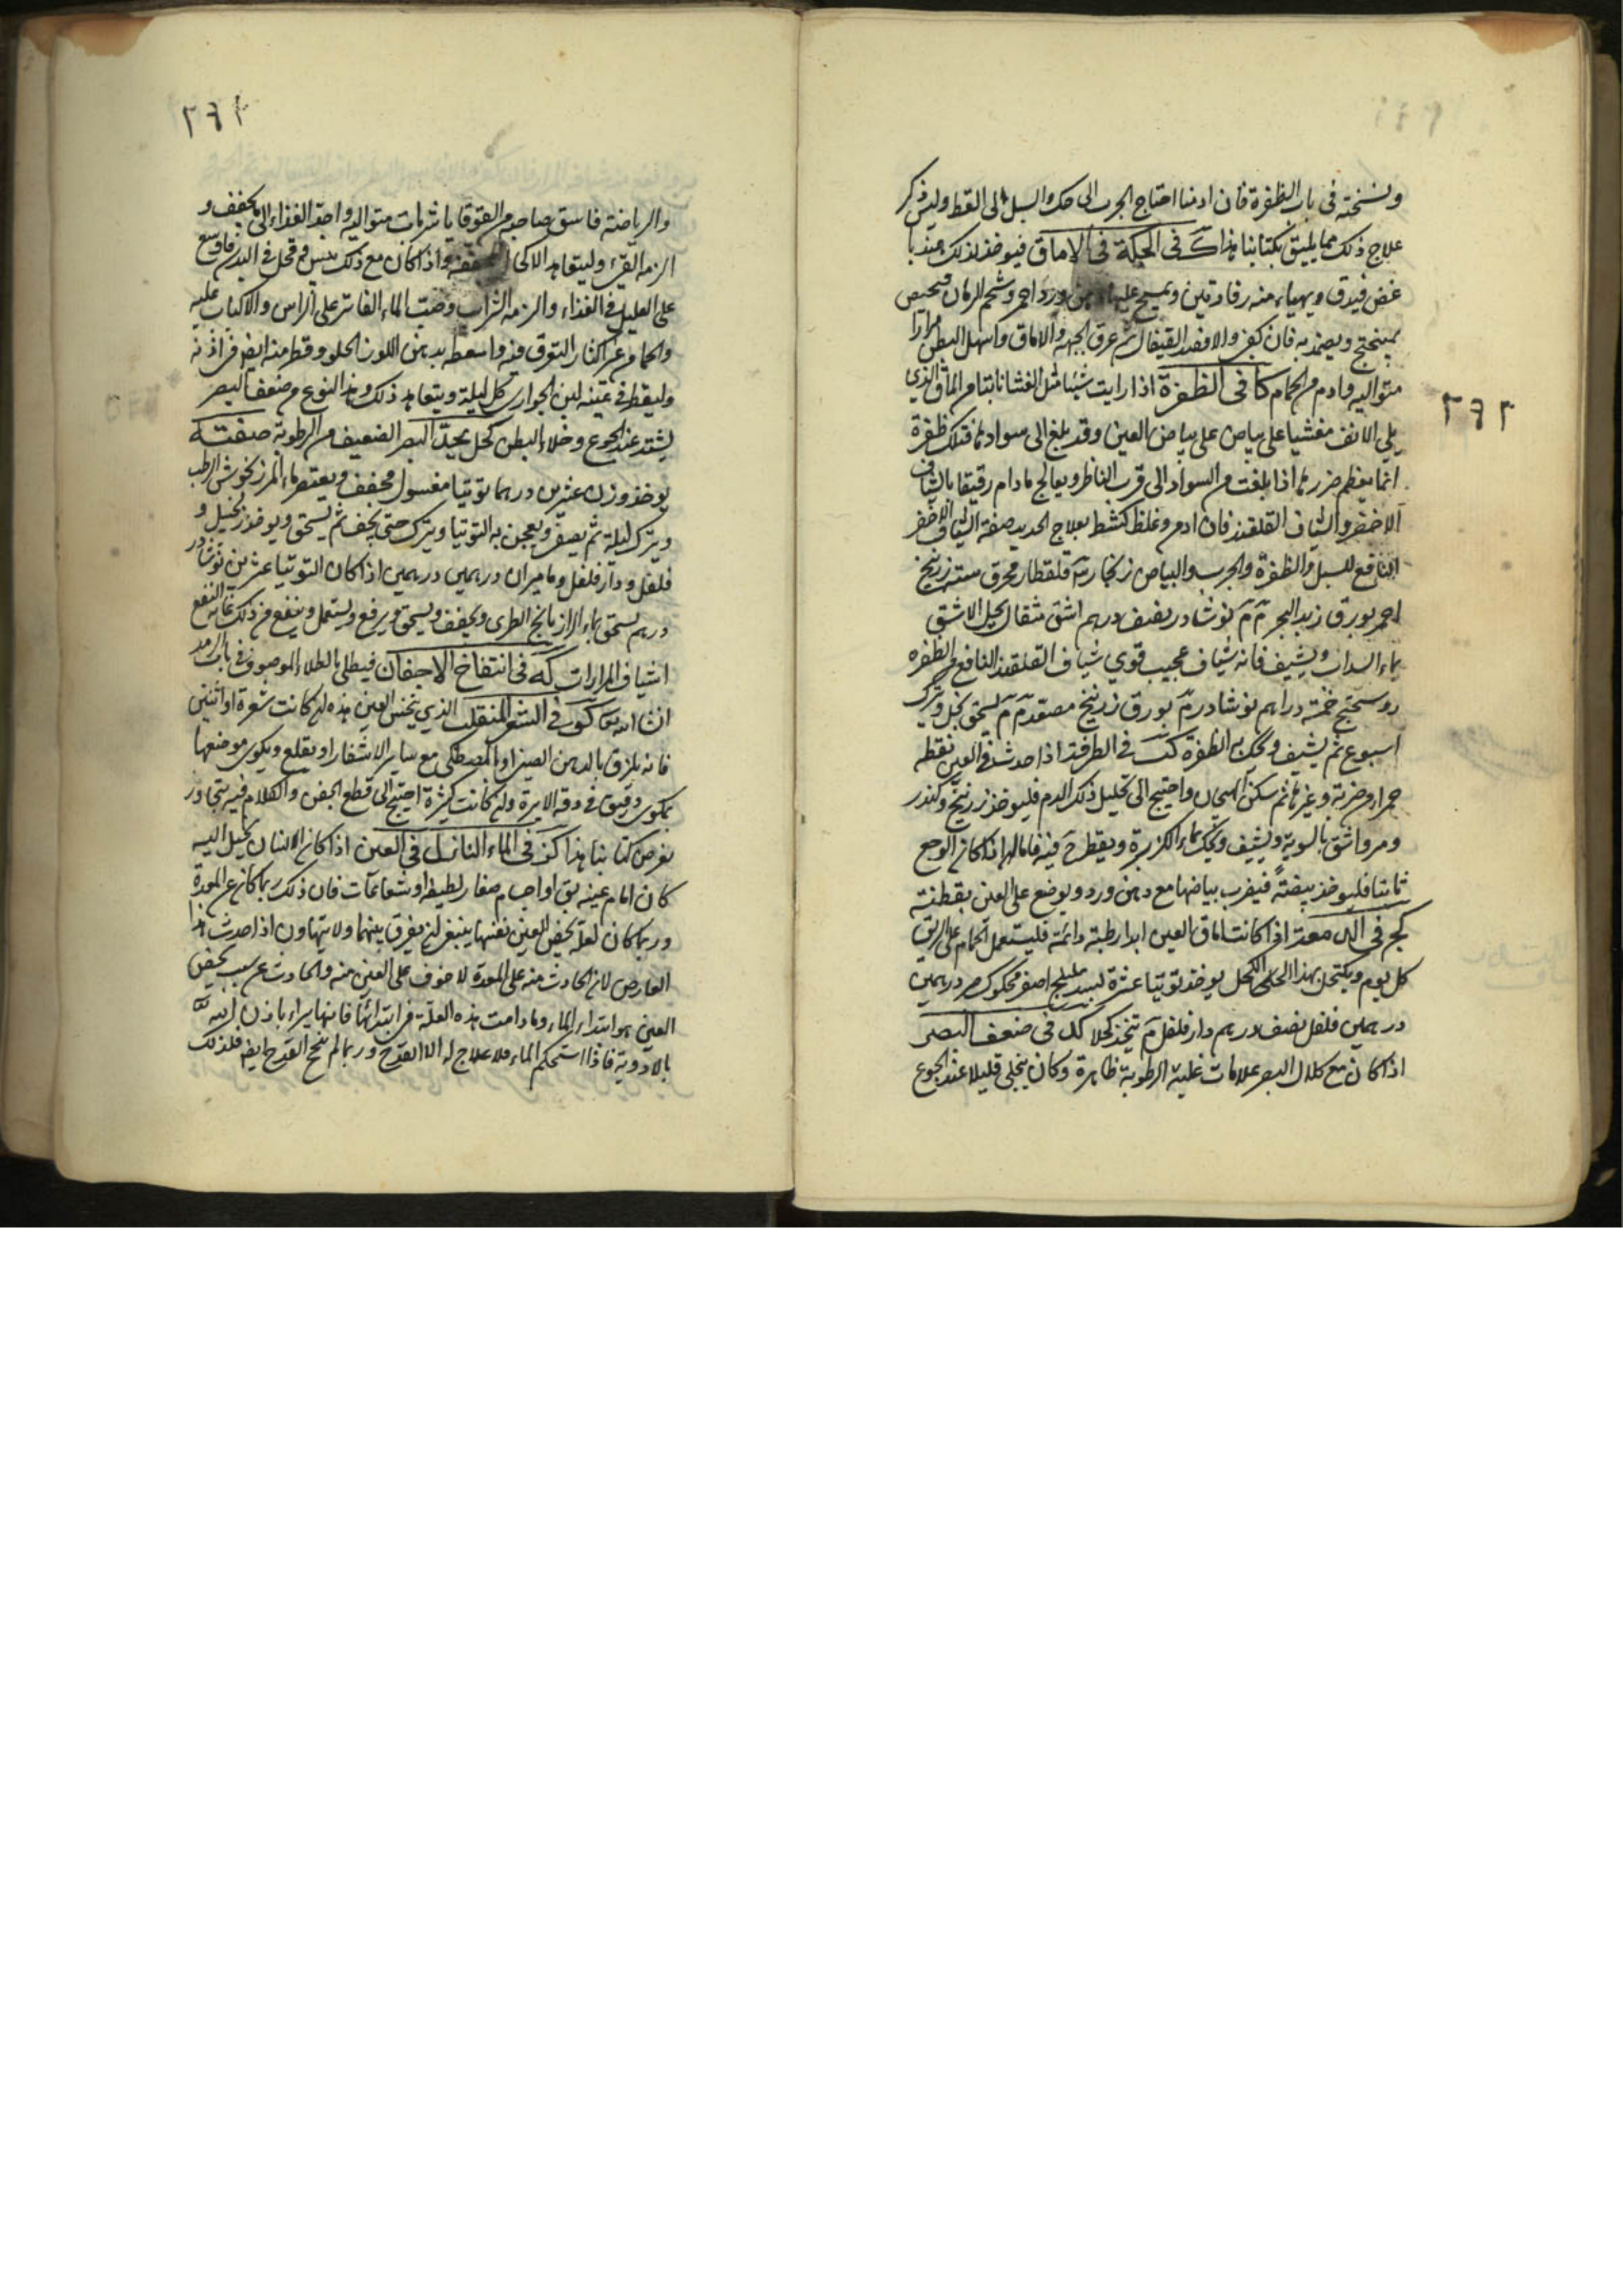 ونسخته فى باب الظفرة فان ادمنا احتاج الجرب الى حك والسبل الى القط وليس ذكر
علاج ذلك مما يليق بكتابنا هذا ك فى الحكة فى الاماق فيوخذ لذلك هندبا
غض فيدق ويهياء منه رفادتين ويمسح عليه دهن ورد احمر وشحم الرمان
بميبختج ويضمد به فان كفى والا فصد القيفال ثم عرق الجبهة والاماق واسهل البطن مرارا
متواليه وادم الحمام كا فى الظفرة اذا رايت شيئا مثل الغشا نابتا من الماق الذى
يلي الانف مغشيا على بياض العين وقد بلغ الى سوادها فتلك ظفرة
انما يعظم ضررها اذا بلغت من السواد الى قرب الناظر ويعالج مادام رقيقا بالشياف
الاخضر والشياف القلقند فان ادمن وغلظ كشط بعلاج الحديد صفة الشياف الاخضر
النافع للسبل والظفرة والجرب والبياض زنجار قلقطار محرق ستة زرنيخ
احمر بورق زبد البحر م م نوشادر نصف درهم اشق مثقال يحل الاشق
بماء السداب ويشيف فانه شياف عجيب قوي شياف القلقند النافع من الظفره
روسختج خمسة دراهم نوشادر م بورق زرنيخ مصعد م م يسحق بخل ويترك
اسبوع ثم يشيف ويحك به الظفرة كب فى الطرفة اذا حدث فى العين نقطه
حمراء وضربة وغيرها ثم سكن الهيجان واحتيج الى تحليل ذلك الدم فليوخذ زرنيخ وكندر
ومر واشق بالسوية ويشيف ويحك بماء الكزبرة ويقطر فيه فاما اذا كان الوجع
ثابتا فليوخذ بيضةً فيضرب بياضها مع دهن ورد ويوضع على العين بقطنة
كج فى الدمعة اذا كانت اماق العين ابدا رطبة دائمة فليستعمل الحمام على الريق
كل يوم ويكتحل بهذا الكحل يوخذ توتيا عشرة اهليلج اصفر محكوك درهمين
درهمين فلفل نصف درهم دار فلفل م يتخذ كحلا كد فى ضعف البصر
اذا كان مع كلال البصر علامات غلبة الرطوبة ظاهرة وكان ينجلي قليلا عند الجوع
٢٦٢
والرياضة فاسق صاحبه القوقايا شربات متواليه واجعل الغذاء الى يجفف و
الزمه القيء وليتعاهد الاكحال واذا كان مع ذلك يبس وقحل فى البدن فاوسع
على العليل فى الغذاء والزمه الشراب وصب الماء الفاتر على الراس والاكباب عليه
والحمام من غير اكثار التعرق فيه واسعطه بدهن اللوز الحلو وقطر منه ايضا فى اذنه
وليقطر فى عينه لبن الجوارى كل ليلة ويتعاهد ذلك وهذا النوع من ضعف البصر
يشتد عند الجوع وخلاء البطن كحل يحد البصر الضعيف من الرطوبة صفته
يوخذ وزن عشرين درهما توتيا مغسول مجفف ويعتصر ماء المرزنجوش الرطب
ويترك ليلة ثم يصفى ويعجن به التوتيا ويترك حتى يجف ثم يسحق ويوخذ زنجبيل و
فلفل ودار فلفل وماميران درهمين درهمين اذا كان التوتيا عشرين نوشادر
درهم يسحق بماء الرازيانج الطرى ويجفف ويسحق ويرفع ويستعمل وينفع من ذلك غاية النفع
اشياف المرارات كه فى انتفاخ الاجفان فيطلى بالطلاء الموصوف فى باب الرمد
ان شا الله كو فى الشعر المنقلب الذي ينخس العين هذه ان كانت شعرة او اثنتين
فانه يلزق بالدهن الصينى او المصطكى مع ساير الاشفار او يقلع ويكوى موضعها
بمكوى دقيق فى دقة الابرة وان كانت كثيرة احتيج الى قطع الجفن والكلام فيه يتجاوز
غرض كتابنا هذا كز فى الماء النازل فى العين اذا كان الانسان يخيل اليه
كان امام عينيه بق او اجسام صغار لطيفة او شعاعات فان ذلك ربما كان عن المعدة
وربما كان لعلة تخص العين نفسها ينبغى ان يفرق بينهما ولا يتهاون اذا حدث هذا
العارض لان الحادث منه على المعدة لا خوف على العين منه والحادث عن سبب يخص
العين هو ابتداء الماء ومادامت هذه العلة فى ابتدائها فانها يبراء باذن الله
بالادوية فاذا استحكم الماء فلا علاج له الا القدح وربما لم ينجح القدح ايضا فلذلك